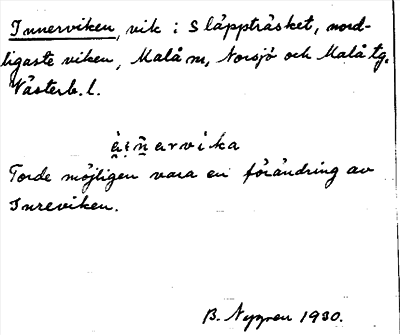 Innerviken, vik i Släppträsket, nord-
ligaste viken, Malå m, Norsjö och Malå tg.
Västerb. l.
Torde möjligen vara en förändring av
Inreviken.
B. Nygren 1930.